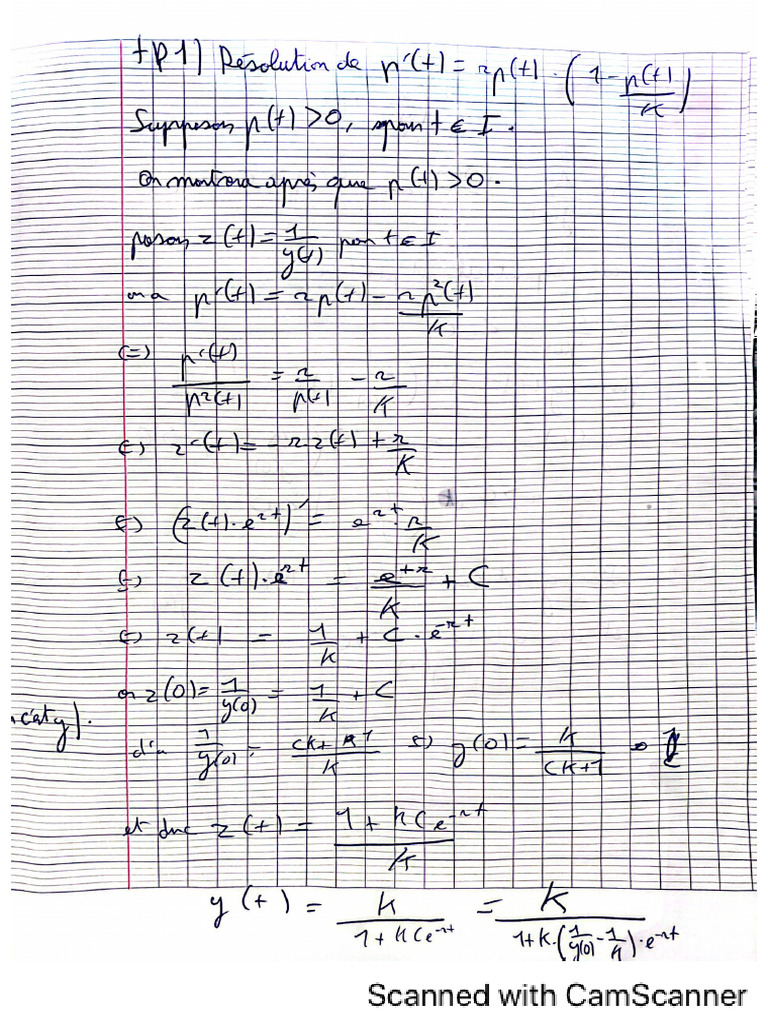 TP1) Résolution de p'(t) = rp(t) · (1 - p(t)/K)
Supposons p(t) > 0, pour t ∈ I.
On montrera après que p(t) > 0.
posons z(t) = 1/y(t) pour t ∈ I
on a p'(t) = rp(t) - rp²(t)/K
(=) p'(t)/p²(t) = r/p(t) - r/K
(=) z'(t) = -rz(t) + r/K
(=) (z(t)·e^rt)' = e^rt · r/K
(=) z(t)·e^rt = e^tr/K + C
(=) z(t) = 1/K + C·e^-rt
or z(0) = 1/y(0) = 1/K + C
d'où 1/y(0) = CK+1/K (=) y(0) = K/CK+1
et donc z(t) = 1 + KCe^-rt/K
y(t) = K/1+KCe^-rt = K/1+K·(1/y(0) - 1/K)·e^-rt
Scanned with CamScanner